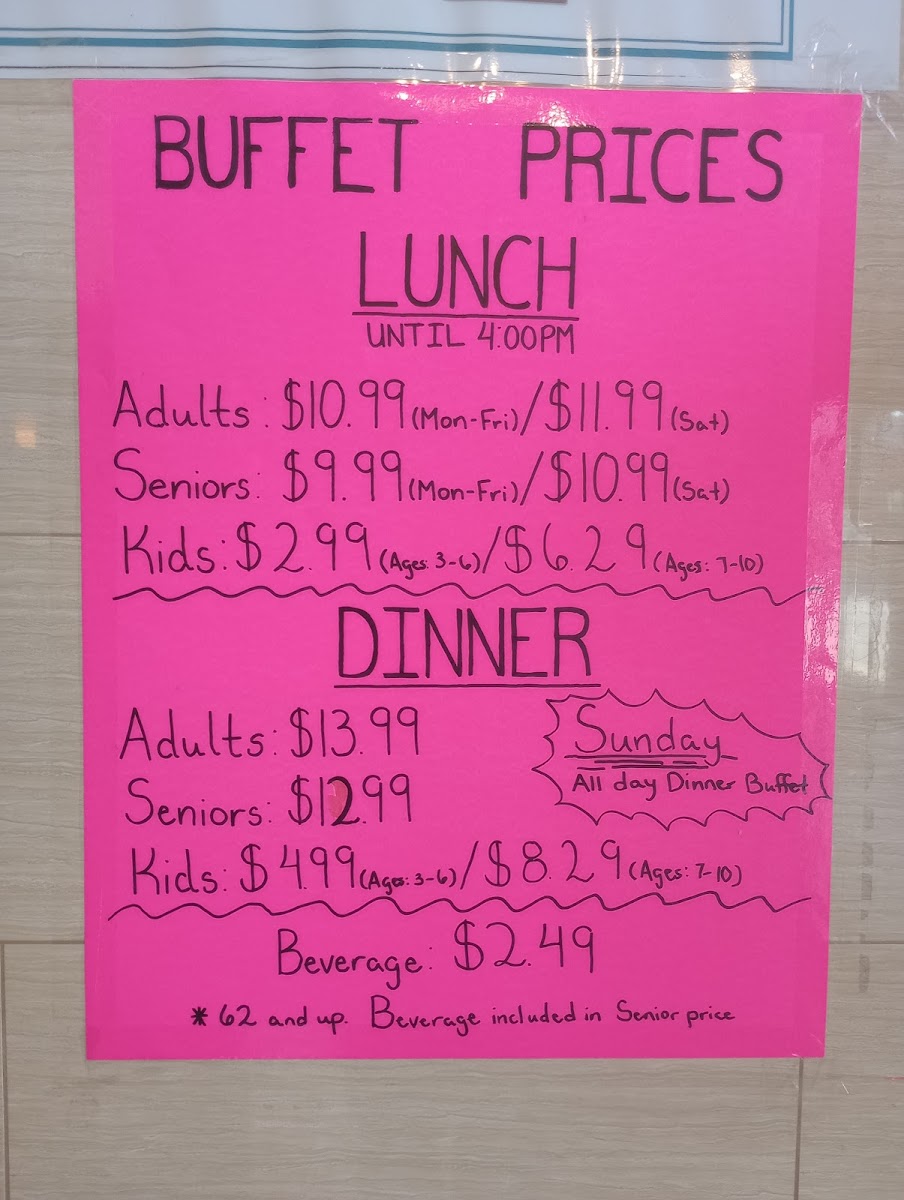 BUFFET PRICES
LUNCH
UNTIL 4:00PM
Adults: $10.99 (Mon-Fri)/$11.99 (Sat)
Seniors: $9.99 (Mon-Fri)/$10.99 (Sat)
Kids: $2.99 (Ages: 3-6)/$6.29 (Ages: 7-10)
DINNER
Adults: $13.99
Seniors: $12.99
Kids: $4.99 (Ages: 3-6)/$8.29 (Ages: 7-10)
Sunday
All day Dinner Buffet
Beverage: $2.49
* 62 and up. Beverage included in Senior price